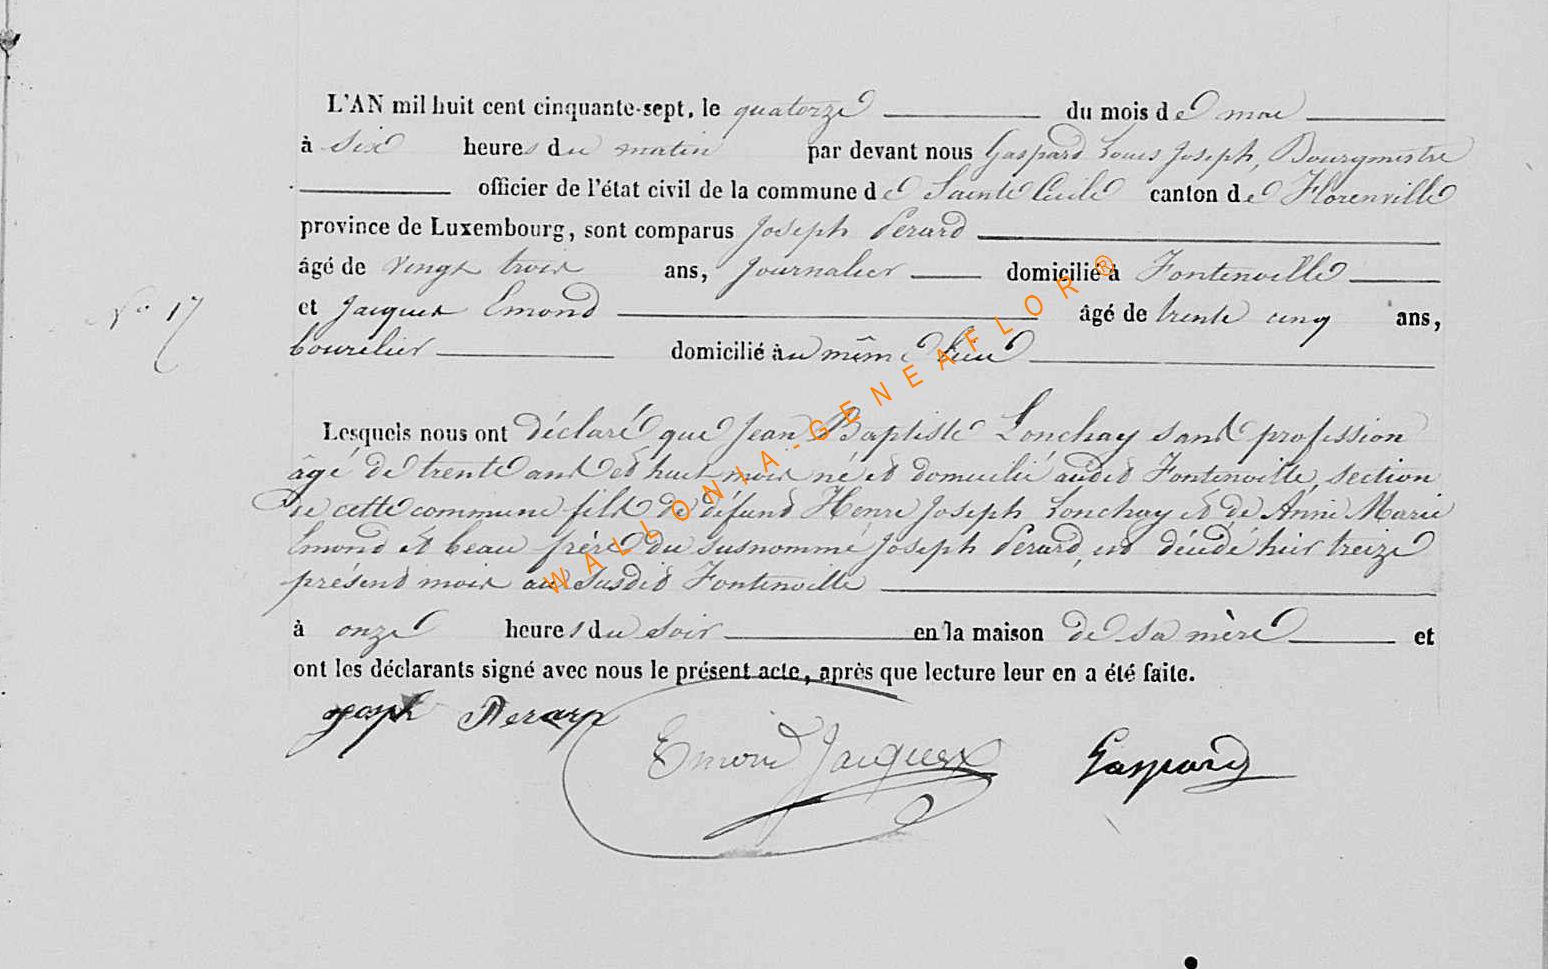 L'AN mil huit cent cinquante-sept, le quatorze du mois de mai
à six heures du matin par devant nous Gaspard Louis Joseph, Bourgmestre
officier de l'état civil de la commune de Sainte Cécile canton de Florenville
province de Luxembourg, sont comparus Joseph Perard
âgé de vingt trois ans, journalier domicilié à Fontenoille
N° 17 et Jacques Emond âgé de trente cinq ans,
bourelier domicilié au même lieu
Lesquels nous ont déclaré que Jean Baptiste Lonchay sans profession
âgé de trente ans et huit mois né et domicilié audit Fontenoille, section
de cette commune fils de défunt Henri Joseph Lonchay et de Anne Marie
Emond et beau frère du susnommé Joseph Perard, est décédé hier treize
présent mois au susdit Fontenoille
à onze heures du soir en la maison de sa mère et
ont les déclarants signé avec nous le présent acte, après que lecture leur en a été faite.
joseph Perard Emond Jacques Gaspard
WALLONIA-GENEAFLOR®